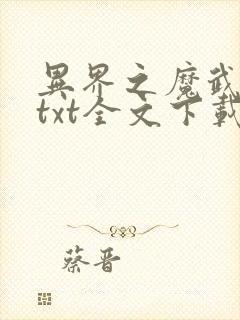 異界之魔武
txt全文下載
蔡晋